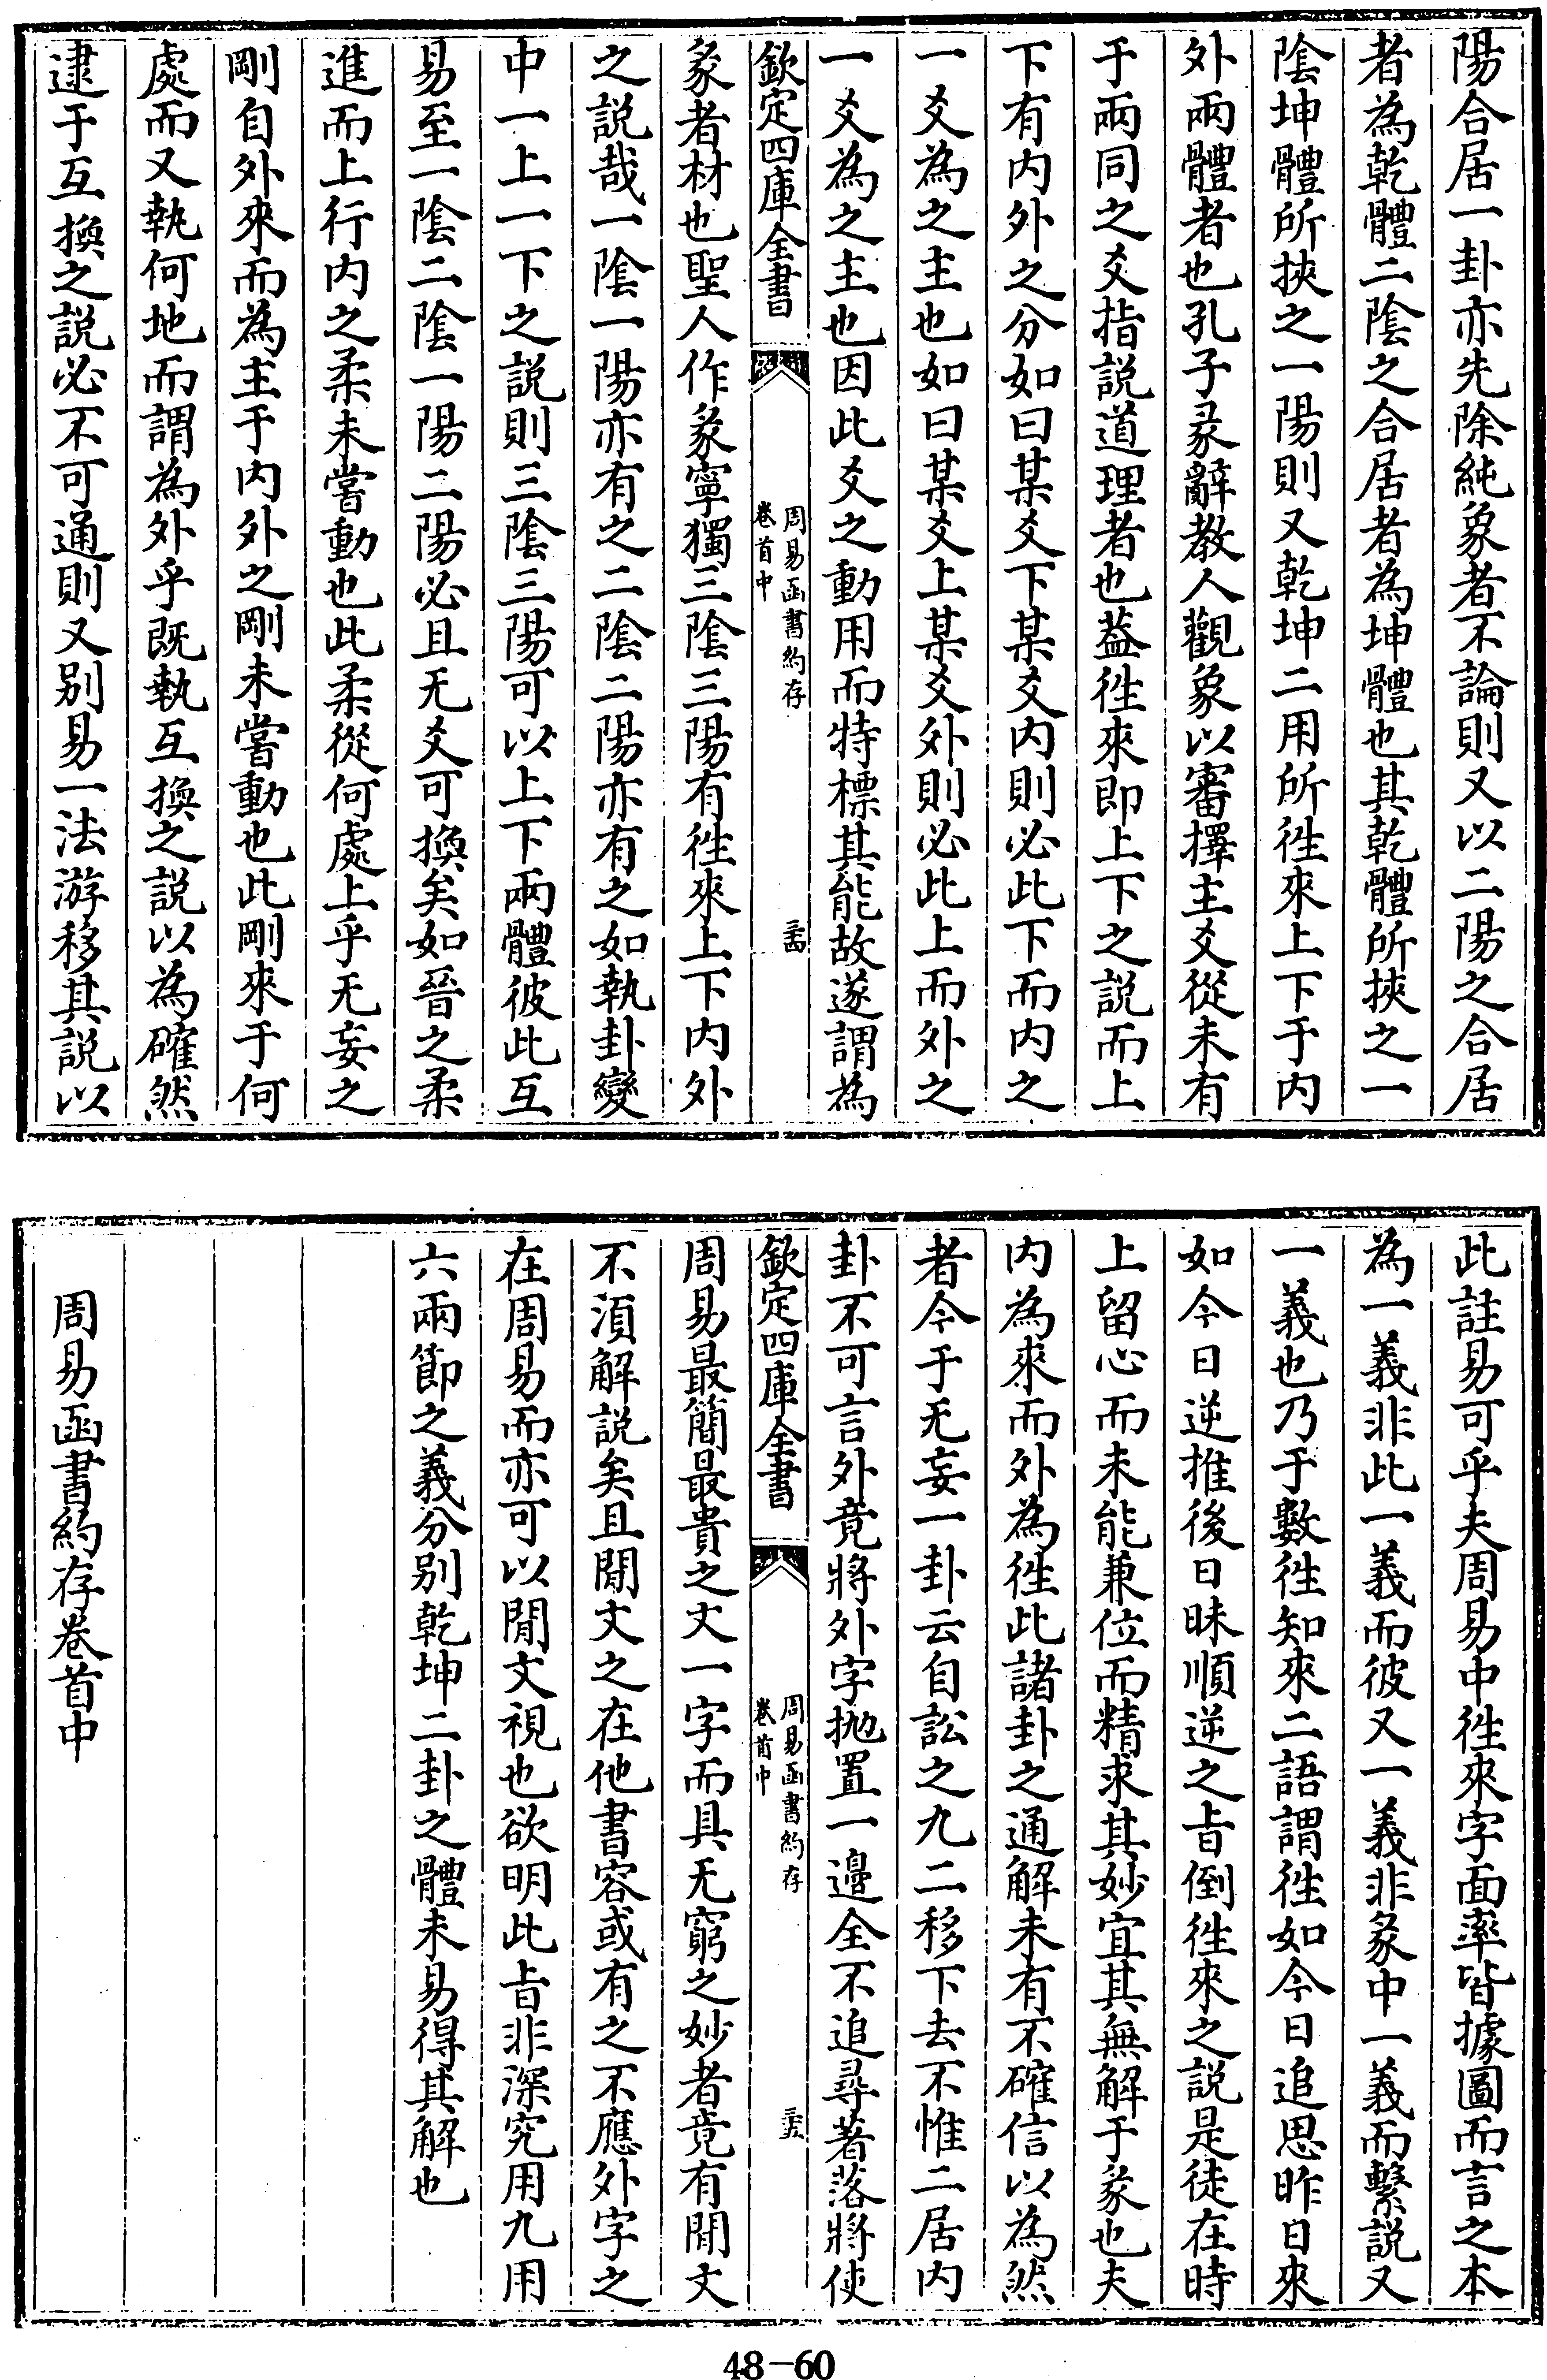 陽合居一卦亦先除純象者不論則又以二陽之合居
者為乾體二隂之合居者為坤體也其乾體所挾之一
隂坤體所挾之一陽則又乾坤二用所徃來上下于内
外兩體者也孔子彖辭教人觀象以審擇主爻從未有
于兩同之爻指説道理者也葢徃來即上下之説而上
下有内外之分如曰某爻下某爻内則必此下而内之
一爻為之主也如曰某爻上某爻外則必此上而外之
一爻為之主也因此爻之動用而特標其能故遂謂為
欽定四庫全書
周易函書約存
卷首中
三十四
彖者材也聖人作彖寧獨三隂三陽有徃來上下内外
之説哉一隂一陽亦有之二隂二陽亦有之如執卦變
中一上一下之説則三隂三陽可以上下兩體彼此互
易至一隂二隂一陽二陽必且无爻可換矣如晉之柔
進而上行内之柔未嘗動也此柔從何處上乎无妄之
剛自外來而為主于内外之剛未嘗動也此剛來于何
處而又執何地而謂為外乎既執互換之説以為確然
逮于互換之説必不可通則又别易一法游移其説以
此註易可乎夫周易中徃來字面率皆據圖而言之本
為一義非此一義而彼又一義非彖中一義而繫説又
一義也乃于數徃知來二語謂徃如今日追思昨日來
如今日逆推後日昧順逆之㫖倒徃來之説是徒在時
上留心而未能兼位而精求其妙宜其無解于彖也夫
内為來而外為徃此諸卦之通解未有不確信以為然
者今于无妄一卦云自訟之九二移下去不惟二居内
卦不可言外竟將外字拋置一邉全不追尋著落將使
欽定四庫全書
周易函書約存
卷首中
三十五
周易最簡最貴之文一字而具无窮之妙者竟有閒文
不湏解説矣且閒文之在他書容或有之不應外字之
在周易而亦可以閒文視也欲明此㫖非深究用九用
六兩節之義分别乾坤二卦之體未易得其解也
周易函書約存卷首中
48-60